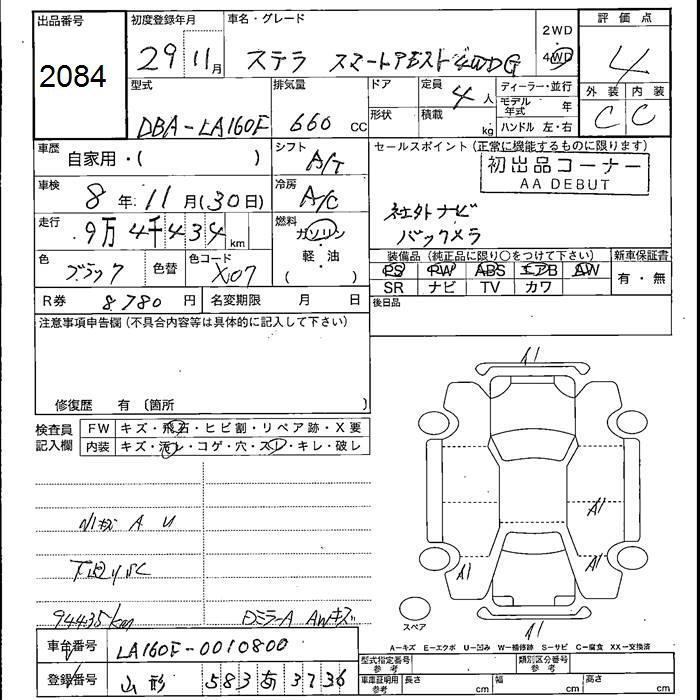 出品番号
2084
初度登録年月
29 11月
車名・グレード
ステラ スマートアシスト 4WD G
2WD
4WD
評価点
4
外装 内装
C C
型式
DBA-LA160F
排気量
660 cc
ドア
形状
定員
4 人
積載
kg
ディーラー・並行
モデル年式 年
ハンドル 左・右
車歴
自家用・( )
シフト
A/T
セールスポイント (正常に機能するものに限ります)
初出品コーナー
AA DEBUT
社外ナビ
バックカメラ
車検
8年 11月(30日)
冷房
A/C
走行
9万4千434 km
燃料
ガソリン
軽・油
( )
色
ブラック
色替
色コード
X07
装備品 (純正品に限り○をつけて下さい)
PS RW ABS エアB AW
SR ナビ TV カワ
新車保証書
有・無
R券 8,780 円
名変期限 月 日
後日品
注意事項申告欄 (不具合内容等は具体的に記入して下さい)
修復歴 有 〔箇所 〕
検査員記入欄
FW キズ・飛石・ヒビ割・リペア跡・X要
内装 キズ・汚レ・コゲ・穴・スレ・キレ・破レ
小キズ A U
下回りSC
94435km
DミラーA AWキズ
A1
A1
A1
A1
A1
スペア
A-キズ E-エクボ U-凹み W-補修跡 S-サビ C-腐食 XX-交換済
車台番号
LA160F-0010800
登録番号
山形 583 あ 3736
型式指定番号 参考
類別区分番号 参考
車庫証明用 参考
長さ cm
幅 cm
高さ cm